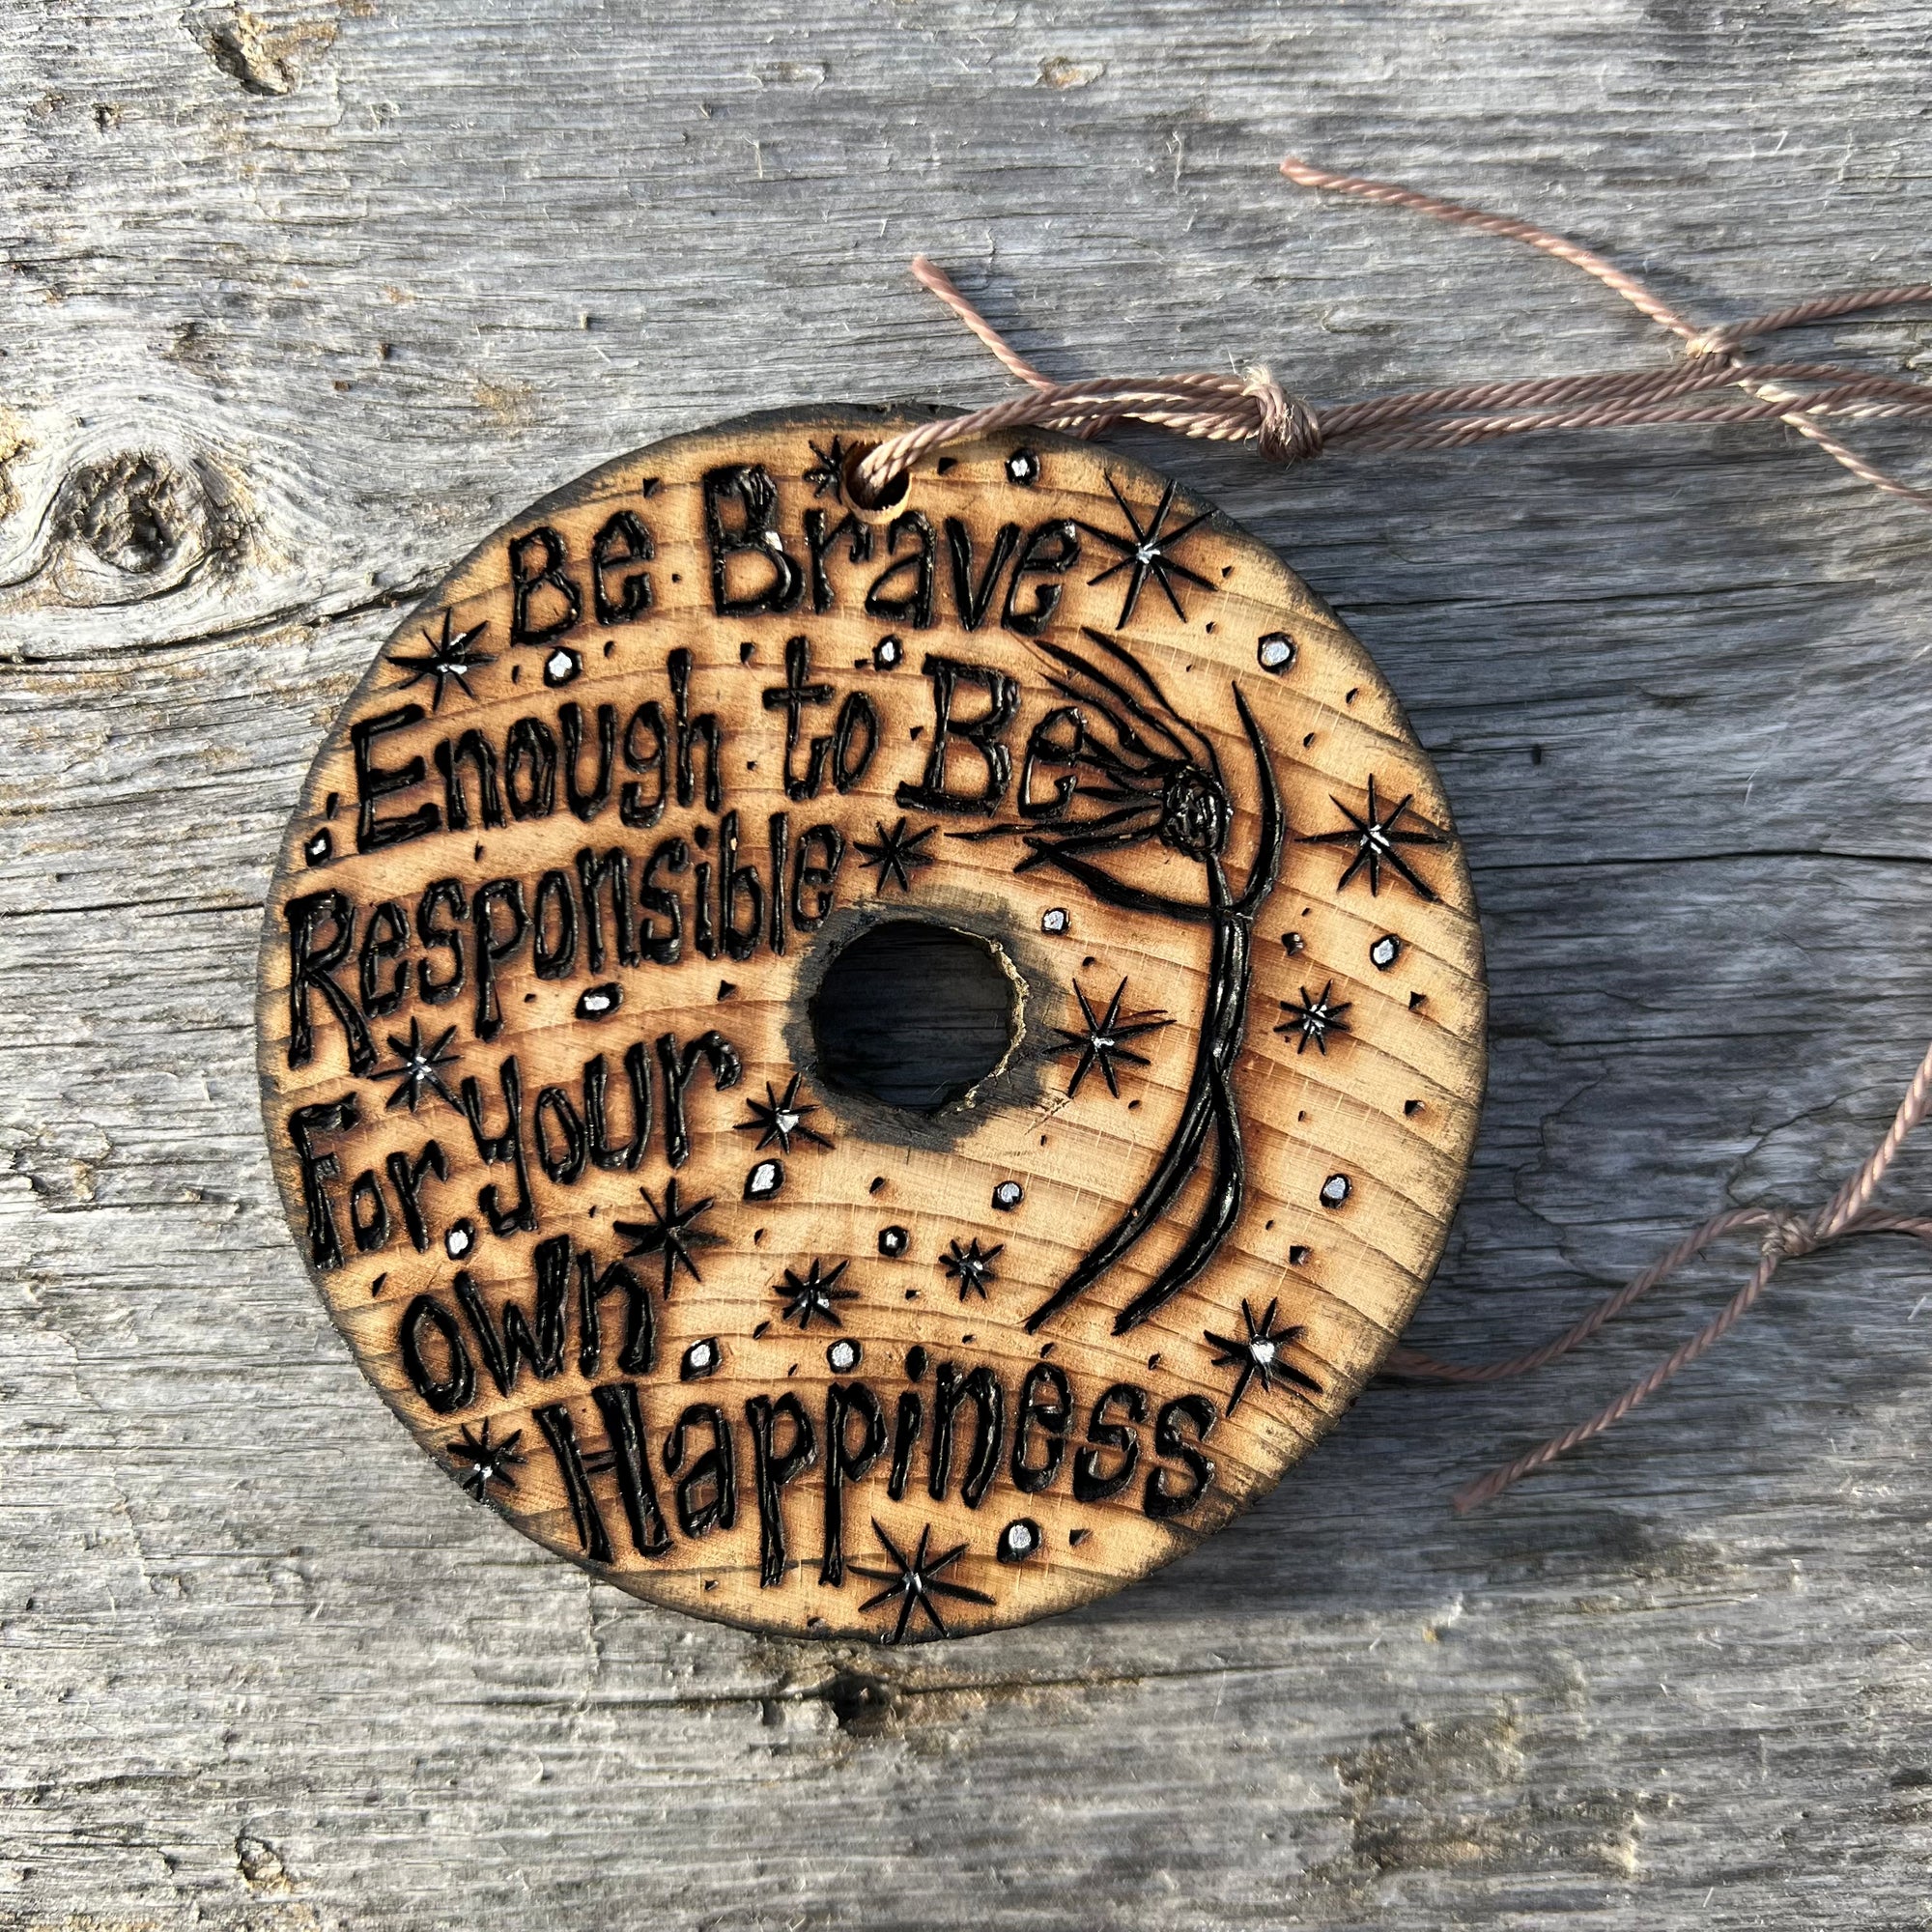 Be Brave
Enough to Be
Responsible
For your
own
Happiness